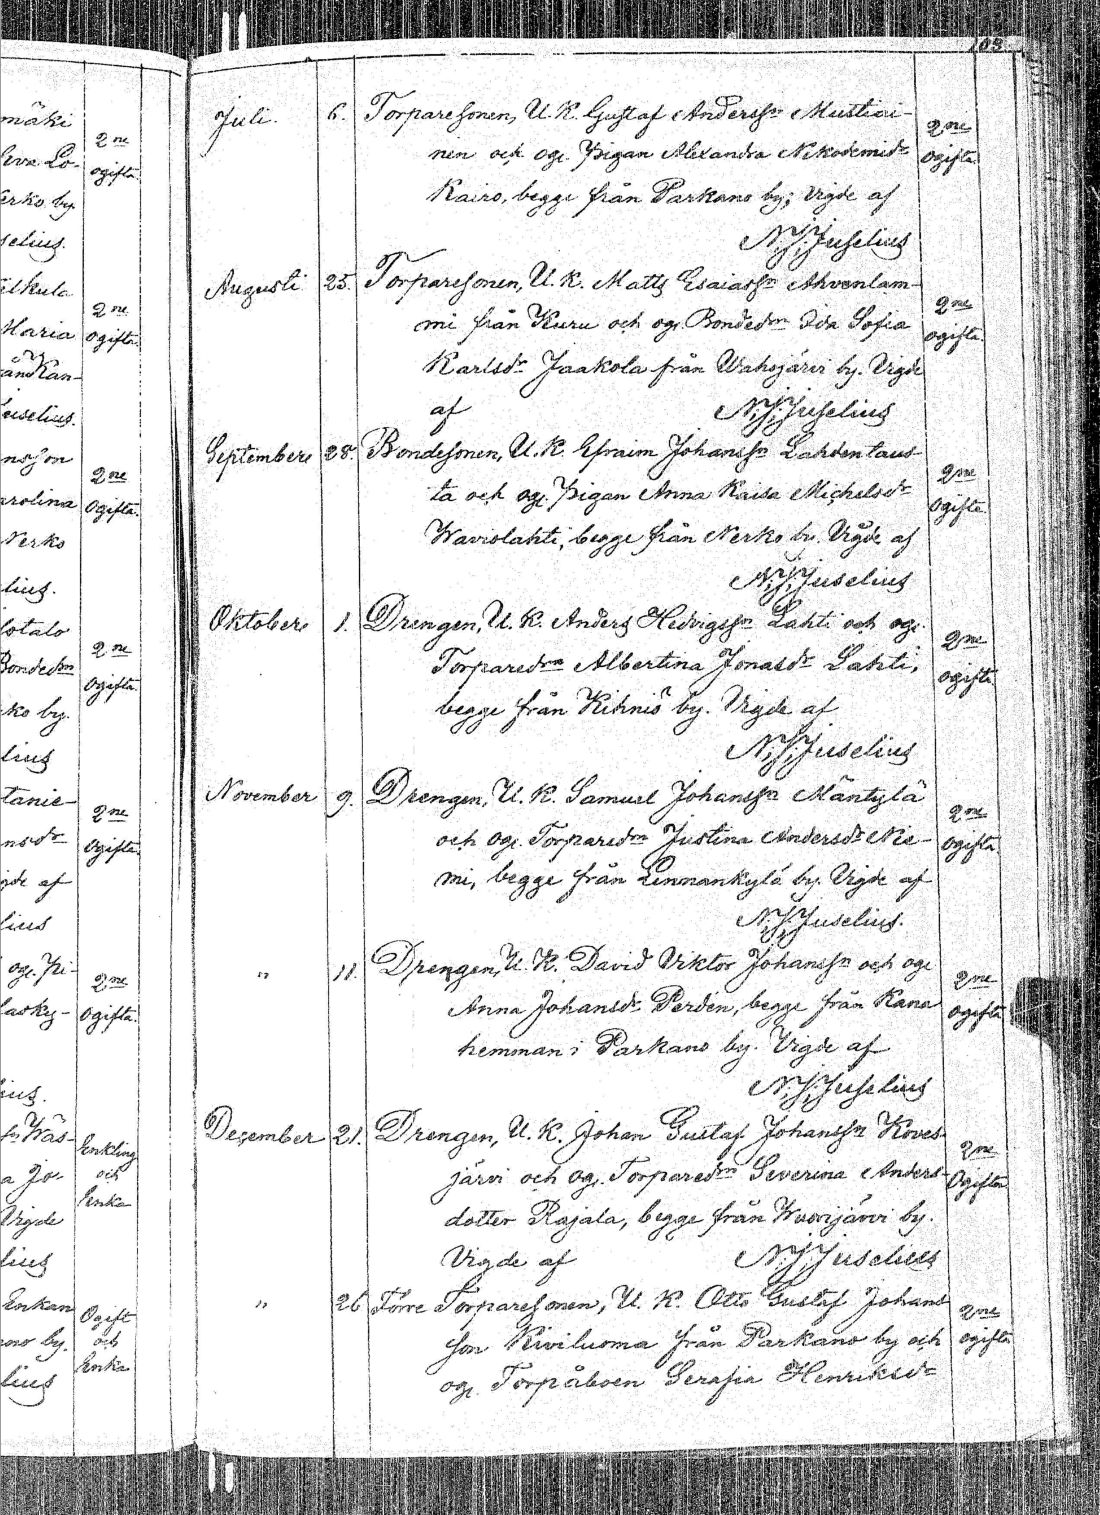 108.
mäki
2ne
ogifta.
Eva Lo-
erko by
selius.
ilkula
2ne
Maria
ogifta.
från Kan-
Juselius.
nsson
2ne
arolina
ogifta.
Nerko
lius.
2ne
Bondedrn
ogifta.
ko by.
lius
tanie-
2ne
nsdr
ogifta.
igde af
lius
og. Pi-
2ne
lasky-
ogifta.
ius.
Wäs-
Enkling
a Jo-
och
Enka
Vigde
lius
Enkan
Ogift
ano by.
och
Enka
lius
Juli. 6. Torparesonen, U. K. Gustaf Anderssn Mustiai-
2ne
nen och og. Pigan Alexandra Nikodemidr
ogifta
Kairo, begge från Parkano by; Vigde af
N.J. Juselius
Augusti 25. Torparesonen, U. K. Matts Esaiassn Ahvenlam-
2ne
mi från Kuru och og. Bondedrn Ida Sofia
ogifta.
Karlsdr Jaakola från Wahojärvi by. Vigde
af N.J. Juselius
September 28. Bondesonen, U. K. Efraim Johanssn Lahdentaus-
2ne
ta och og. Pigan Anna Kaisa Michelsdr
ogifta.
Waviolahti, begge från Nerko by. Vigde af
N.J. Juselius
Oktober 1. Drengen, U. K. Anders Hedvigssn Lahti och og.
2ne
Torparedrn Albertina Jonasdr Lahti,
ogifta
begge från Kihniö by. Vigde af
N.J. Juselius
November 9. Drengen, U. K. Samuel Johanssn Mäntylä
2ne
och og. Torparedrn Justina Andersdr Nie-
ogifta.
mi, begge från Linnankylä by. Vigde af
N.J. Juselius.
" 11. Drengen, U. K. David Viktor Johanssn och og.
2ne
Anna Johansdr Perdén, begge från Kana
ogifta
hemman i Parkano by. Vigde af
N.J. Juselius
December 21. Drengen, U. K. Johan Gustaf Johanssn Koves-
2ne
järvi och og. Torparedrn Severina Anders-
Ogifta
dotter Rajala, begge från Wuorijärvi by.
Vigde af N.J. Juselius
" 26 Förre Torparesonen, U. K. Otto Gustaf Johans
2ne
son Kiviluoma från Parkano by och
ogifta
og. Torpåboen Serafia Henriksdr